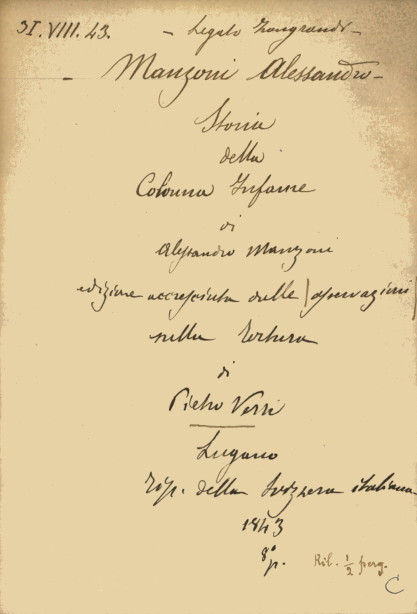 31.VIII.43. - Legato Zongrandi -
- Manzoni Alessandro -
Storia
della
Colonna Infame
di
Alessandro Manzoni
edizione accresciuta delle osservazioni
sulla Tortura
di
Pietro Verri
Lugano
Tip. della Svizzera italiana
1843
8° p.
Ril. 1/2 perg.
C